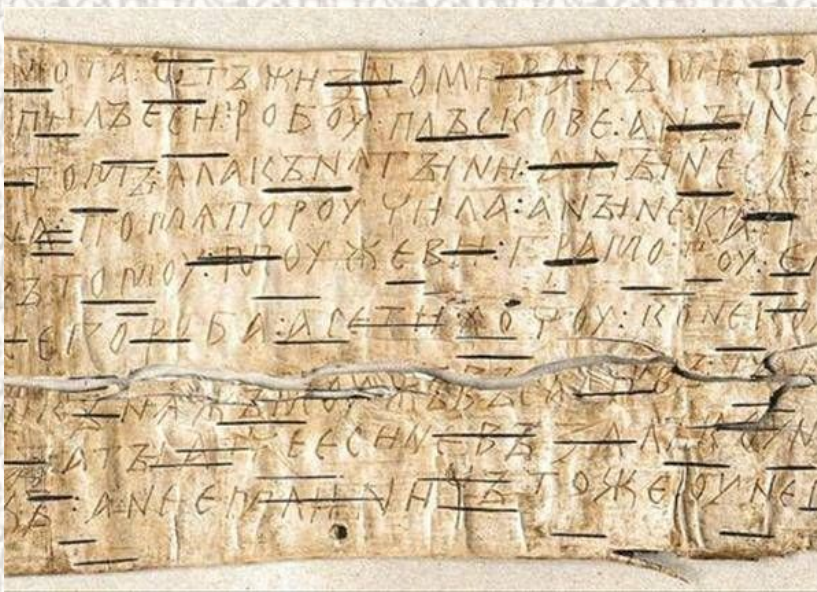 МОТА : ѾТЪ ЖИЗНОМИРА : КЪ МИК
ПИЛЪ ЕСИ : РОБОУ : ПЛЪСКОВЕ : А НЫНЕ
ТОМЪ : ѦЛА КЪНѦГЫНИ : А НЫНЕ СѦ :
НА : ПО МѦ ПОРОУЧИЛА : А НЫНЕ КА :
Ъ ТОМОУ : МОУЖЕВИ : ГРАМОТОУ : ЕЛ
НЕГО РОБА : А СЕ ТИ ХОЧОУ : КОНЕ КОУ
КЪНѦЖЪ МОУЖЪ ВЪСА
АТЧЕ ЕСИ НЕ ВЪЗАЛЪ КОУН
ХЪ : А НЕ ЕМЛИ : НИЧЪТО ЖЕ ОУ НЕГ